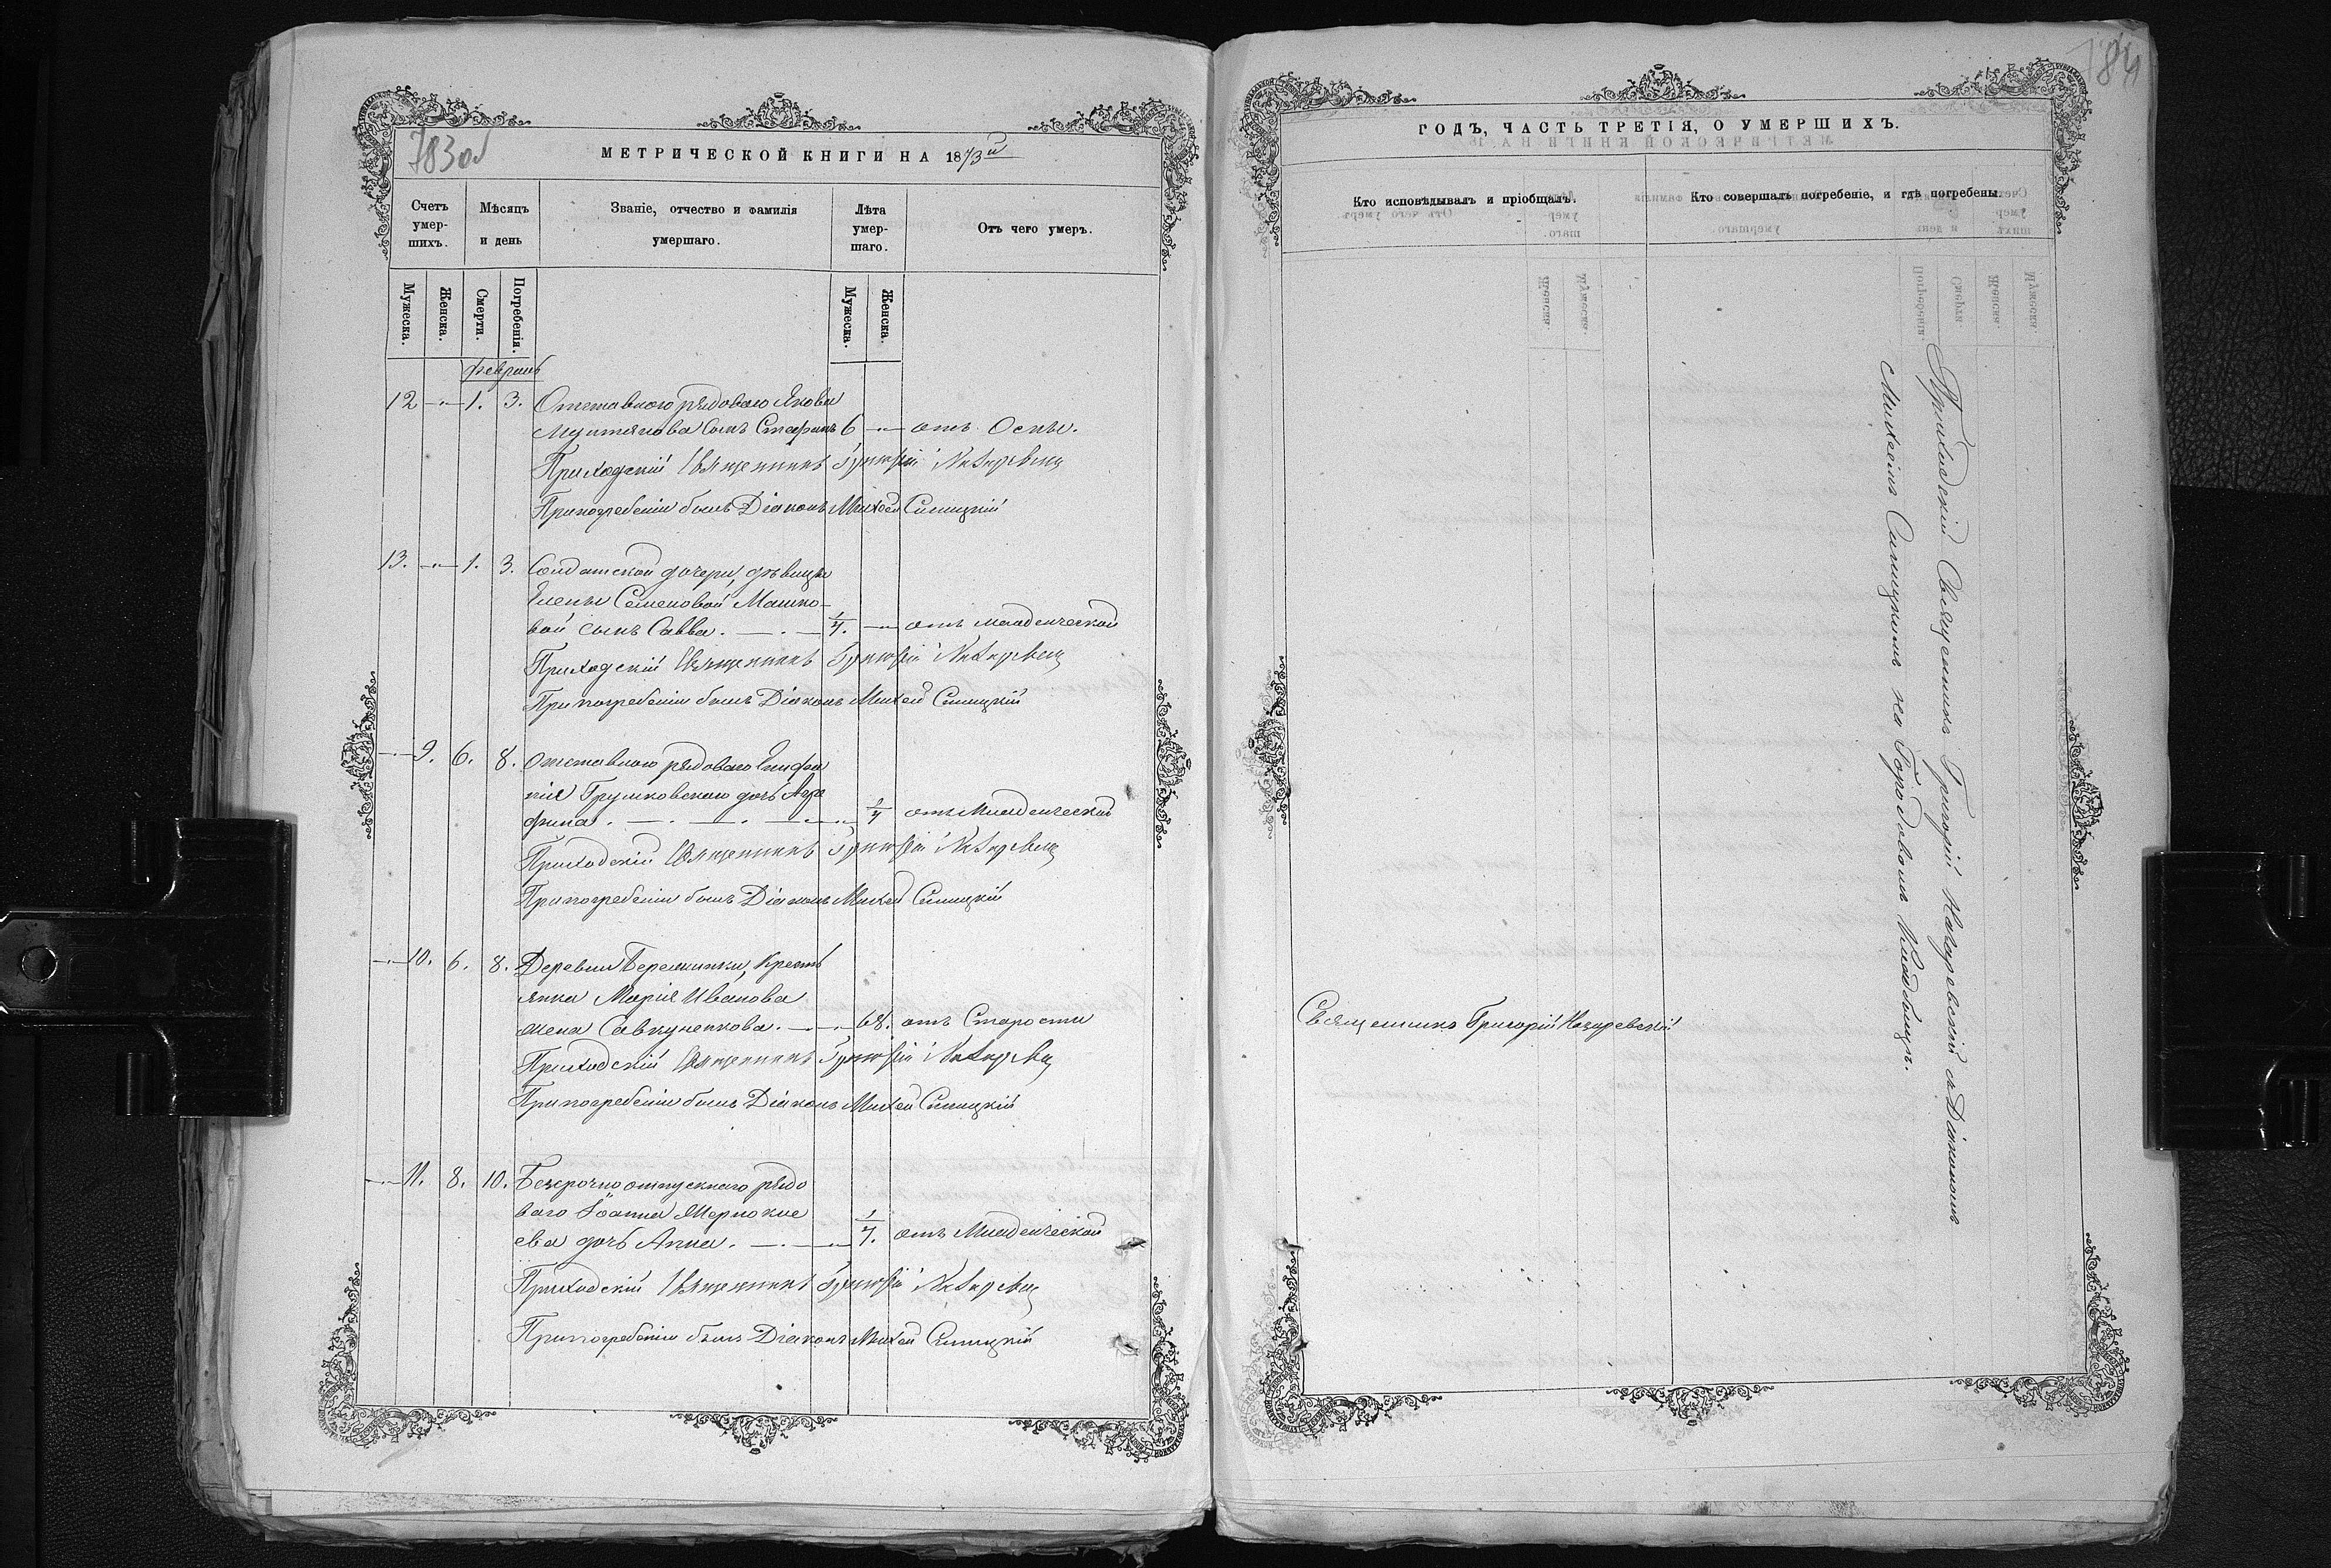 783об
МЕТРИЧЕСКОЙ КНИГИ НА 1873й
Счетъ умер-шихъ.
Мѣсяцъ и день
Званіе, отчество и фамилія умершаго.
Лѣта умер-шаго.
Отъ чего умеръ.
Мужеска.
Женска.
Смерти.
Погребенія.
Мужеска.
Женска.
Февраль
12 1. 3. Отставного рядоваго Якова
сынъ Стефанъ 6 отъ Оспы.
Приходскій Священникъ Григорій
При погребеніи былъ Діаконъ Михаил Синицкій
13. 1. 3. Солдатской дочери, дѣвицы
Елены Семеновой Машко-
вой сынъ Савва. 1/4. отъ младенческой
Приходскій Священникъ Григорій
При погребеніи былъ Діаконъ Михаил Синицкій
9. 6. 8. Отставного рядоваго Епифа
нія Грушковскаго дочь Агра
фина. 1/4 отъ Младенческой
Приходскій Священникъ Григорій
При погребеніи былъ Діаконъ Михаил Синицкій
10. 6. 8. Деревни Кресть
янка Марія Иванова
жена 68. отъ Старости
Приходскій Священникъ Григорій
При погребеніи былъ Діаконъ Михаил Синицкій
11. 8. 10. Безсрочно отпускнаго рядо
ваго Іоанна
ева дочь Анна. 1/4. отъ Младенческой
Приходскій Священникъ Григорій
При погребеніи былъ Діаконъ Михаил Синицкій
184
ГОДЪ, ЧАСТЬ ТРЕТІЯ, О УМЕРШИХЪ.
Кто исповѣдывалъ и пріобщалъ.
Кто совершалъ погребеніе, и гдѣ погребены.
Священникъ Григорій Назаревскій
Приходскій Священникъ Григорій Назаревскій съ Діакономъ
Михаиломъ Синицкимъ на Городовомъ Кладбищѣ.